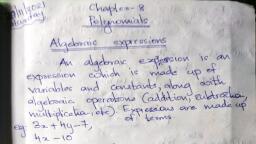 Chapter - 8
Polynomials
Algebraic expressions
An algebraic expression is an
expression which is made up of
variables and constants, along with
algebraic operations (addition, subtraction,
multiplication, etc). Expressions are made up
of terms
eg: 3x + 4y - 7,
4x - 10